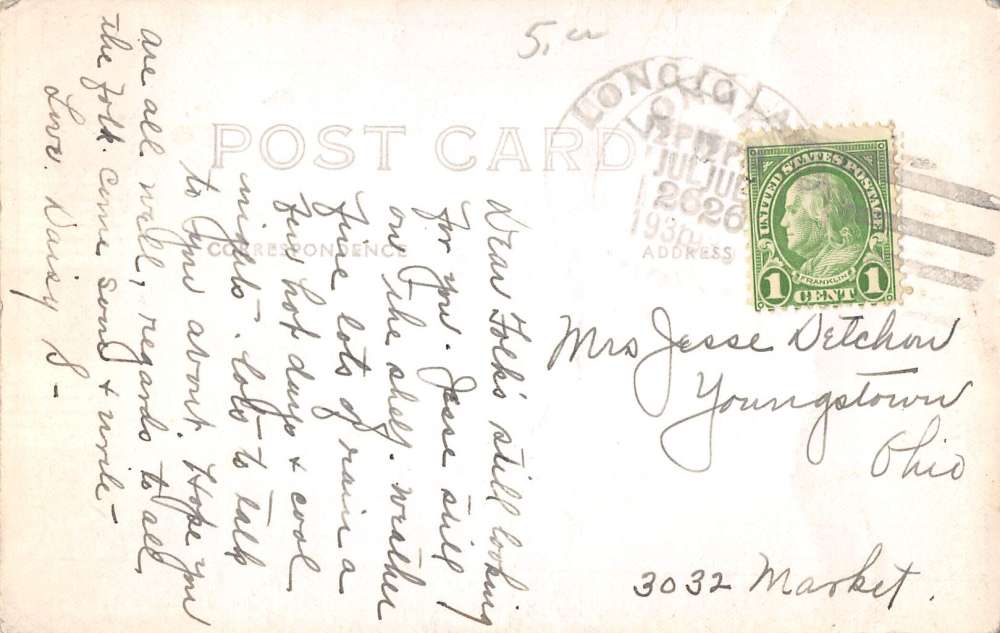 5.
LONG
PM
JUL JUL
26 26
193
POST CARD
CORRESPONDENCE
ADDRESS
UNITED STATES POSTAGE
FRANKLIN
1 CENT 1
Dear Folks still looking
for you. Jesse still
on the shelf. weather
fine lots of rain a
few hot days + cool
nights. lots to talk
to you about. Hope you
are all well, regards to all
the folk. come soon + write -
Love. Daisy S -
Mrs Jesse Detchon
Youngstown
Ohio
3032 Market.